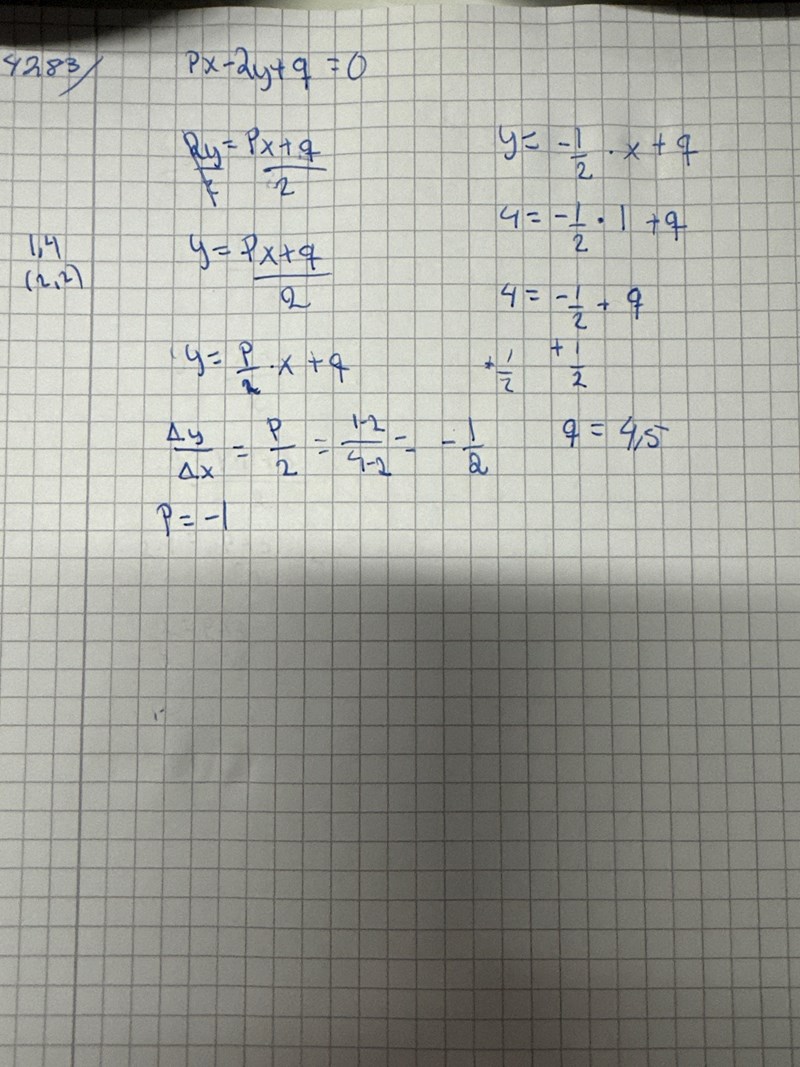 4283/
px-2y+q=0
2y/2 = px+q/2
1,4
(2,2)
y = px+q/2
y = p/2 · x + q
Δy/Δx = p/2 = 1-2/4-2 = -1/2
p = -1
y = -1/2 · x + q
4 = -1/2 · 1 + q
4 = -1/2 + q
+1/2 +1/2
q = 4,5